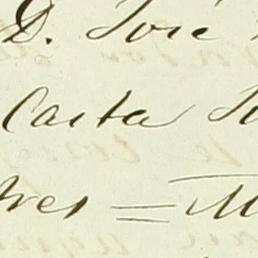 D. José
Carta
tres = M